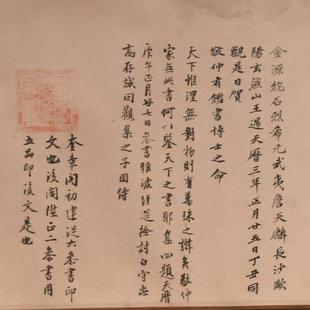 金源紇石烈希元武夷詹天麟長沙歐
陽玄燕山王遇天曆三年正月廿五日丁丑同
觀是日賀
敬仲有鑑書博士之命
天下惟理無對物則有萬殊之辨矣敬仲
家無此書何以鑒天下之書耶集四題天曆
庚午正月廿七日參書雅琥經筵檢討白守忠
高存誠同觀集之子同侍
奎章閣初建從六參書印
文也後閣陞正二參書用
五品印後文是也